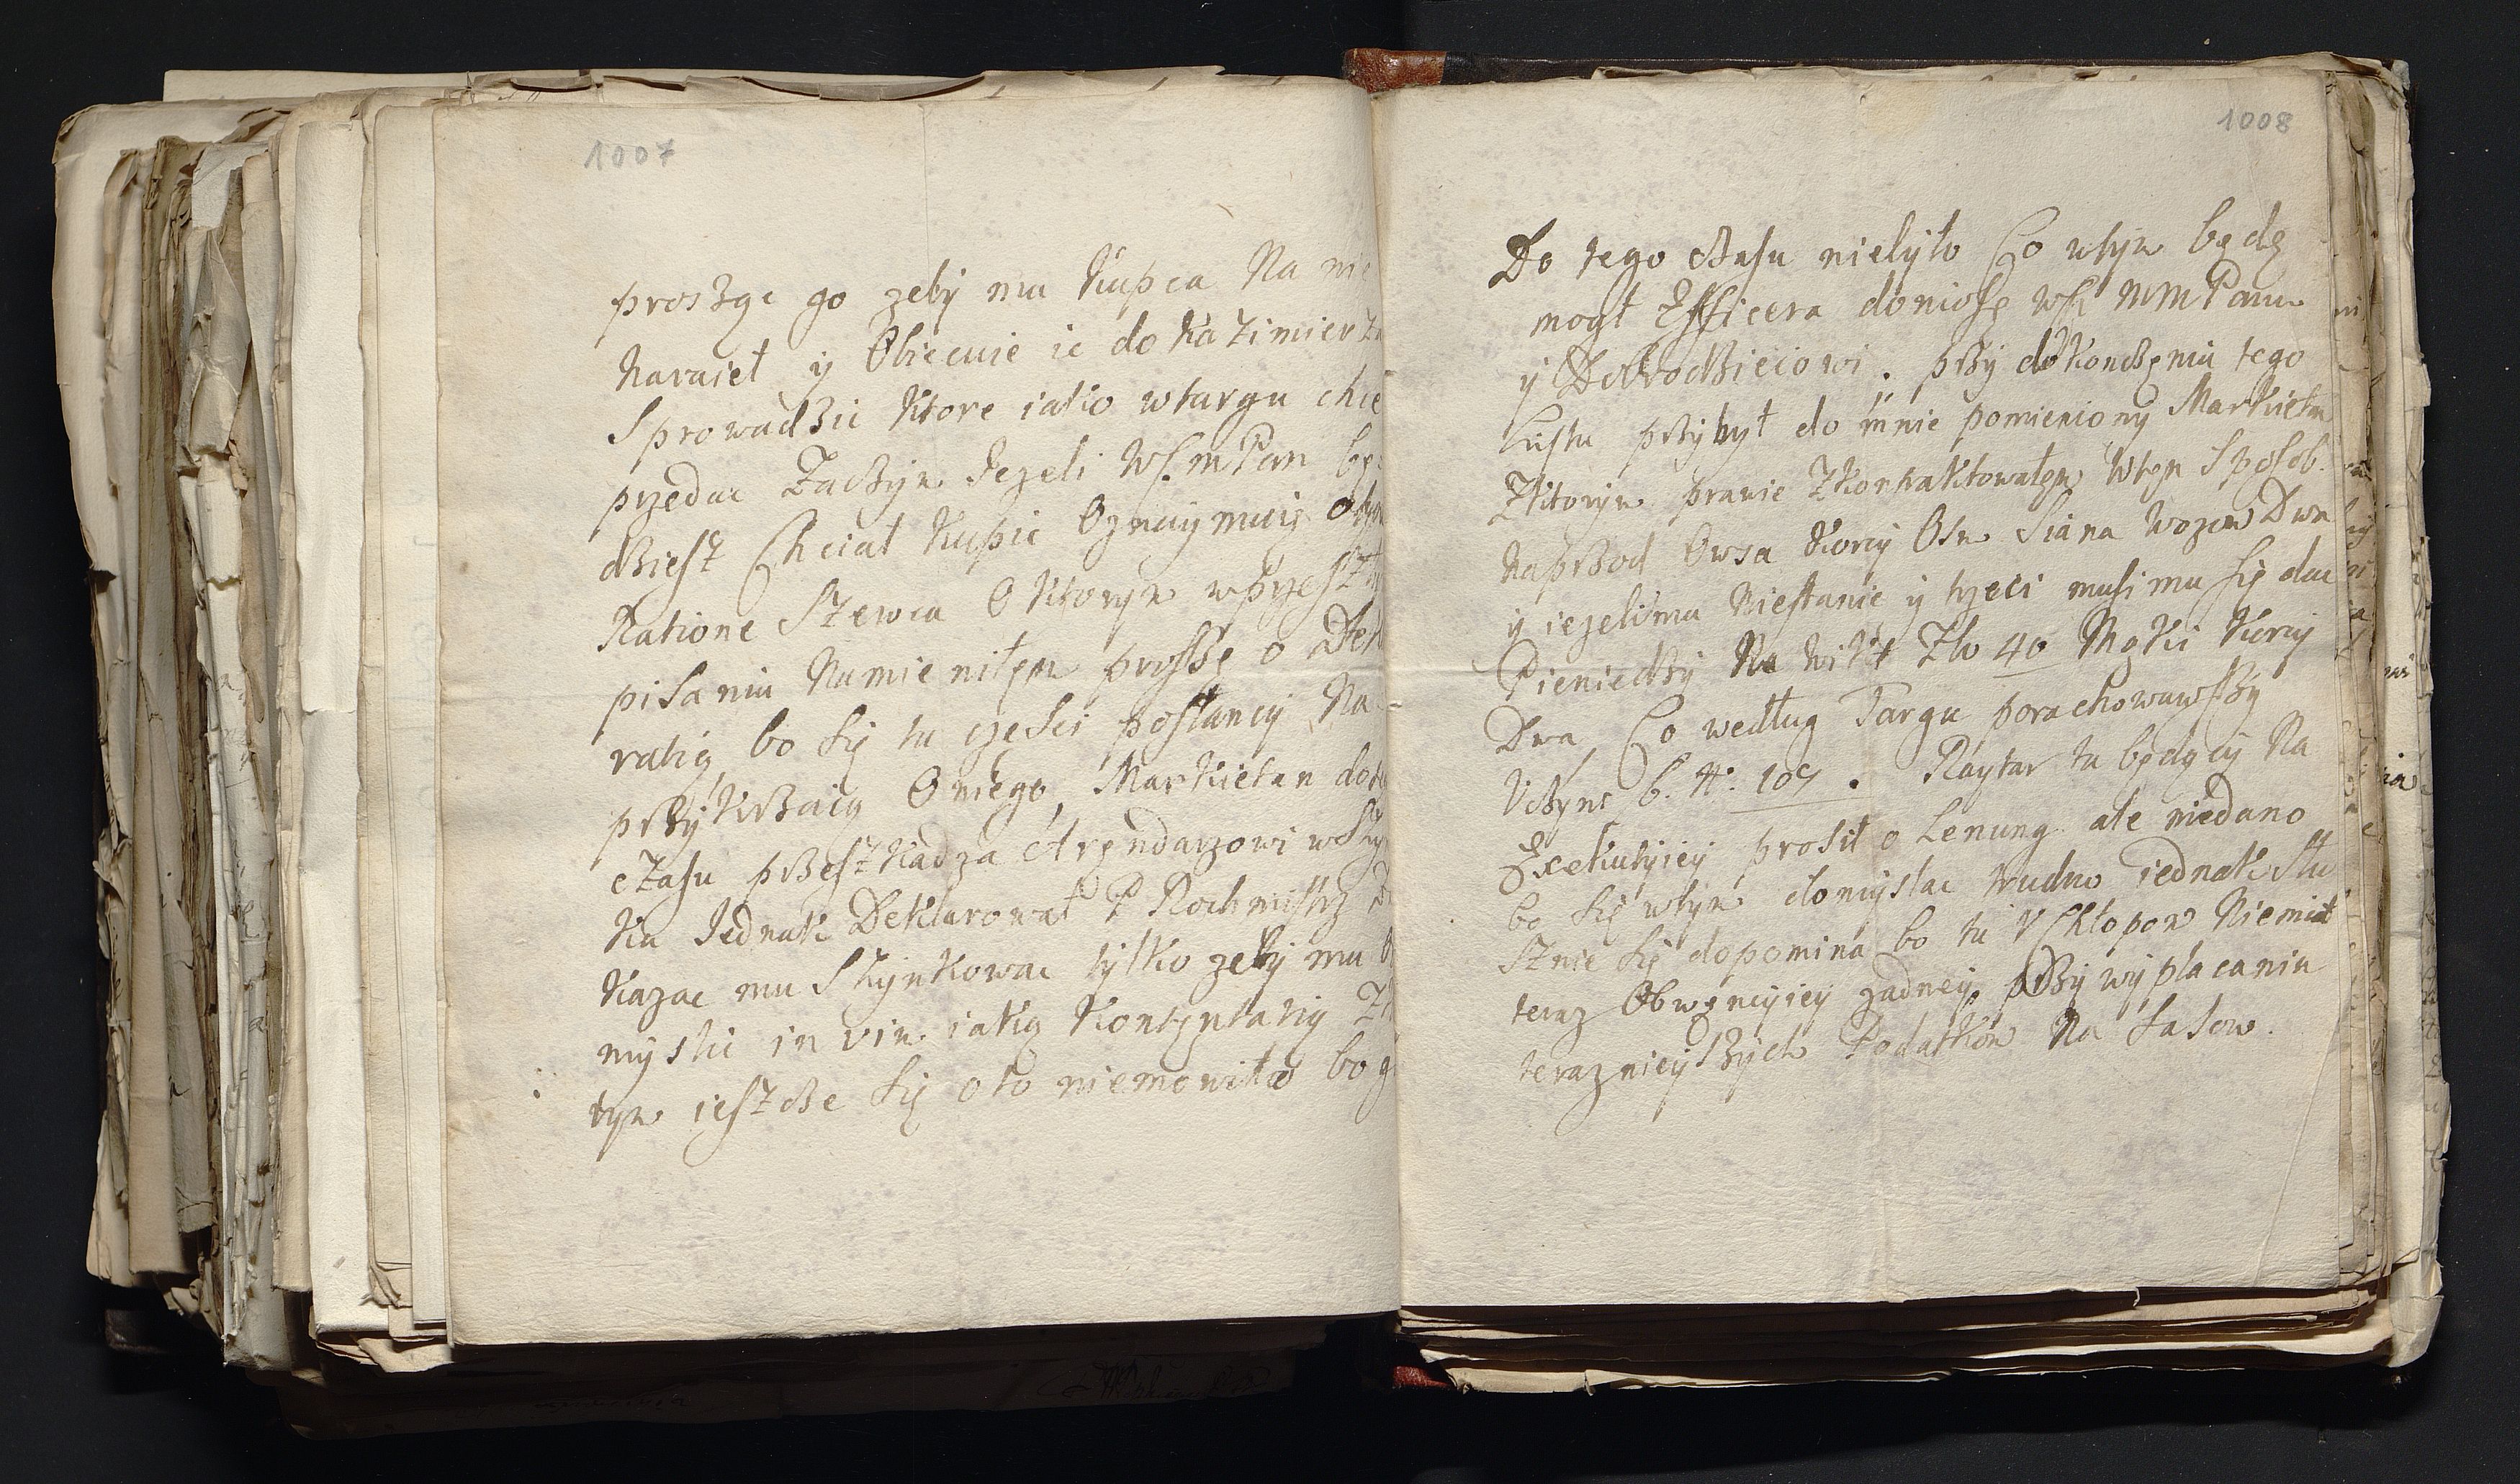 1007
proszge go zeby mu Kupca Na nie
Naraieł y Obiecuie ie do Kazimierza
Sprowadzic Ktore iako wtargu chce
przedac Zaczym Jezeli WSmPan bę
dziesz Chciał Kupic Oznaymuię
Ratione Szewca O Ktorym wprzeszły
pisaniu Namieniłęm proszę o Dek
ratią bo Się tu częsci posłancy Na
przykrzaią Oniego Markietan dote
czasu przeszkadza Aręndarzowi wSzy
Ku Jednak Deklarował P Rochmistrz
Kazac mu Szynkowac tylko zeby mu
myslic in vim iakią Kontęntatią
tym ieszcze Się oto niemowiło bo g
1008
Do tego czasu niebyło Co wtym będę
mogł Efficere donioszę WSh MMPanu
y Dobrodzieiowi. przy dokonczęniu tego
Listu przybył do mnie pomieniony Markietan
Zktorym prawie Zkontraktowałęm wtęn Sposob.
Naprzod Owsa Korcy Osm Siana wozow Dwa
y iezeli mu Niestanie y trzeci musi mu się dac
Pieniedzy Na Wikt Zło 40 Mąki Korcy
Dwa Co według Targu porachowawszy
Vczyni b. tt. 109. Raytar tu będący Na
Exekutyiey prosił o Lenung ale niedano
bo Się wtym domyslac trudno iednak Słu
sznie Się dopomina bo tu V Chłopow Niemiał
teraz Obwęncyiey zadney przy wypłacaniu
teraznieyszych Podatkow Na Sasow.